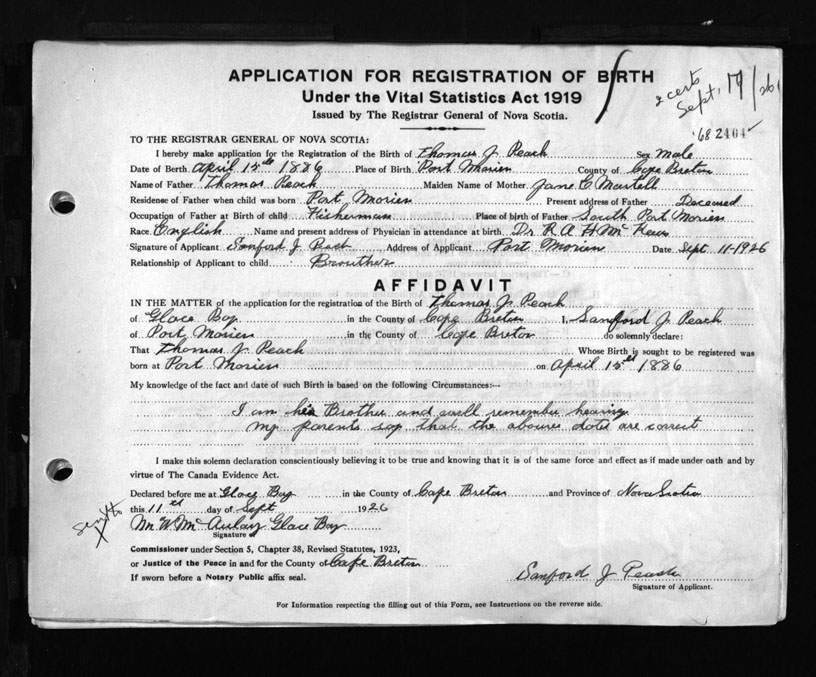 APPLICATION FOR REGISTRATION OF BIRTH
Under the Vital Statistics Act 1919
Issued by The Registrar General of Nova Scotia.
2 certs
Sept. 17/26
'68 2404
TO THE REGISTRAR GENERAL OF NOVA SCOTIA:
I hereby make application for the Registration of the Birth of Thomas J. Peach Sex Male
Date of Birth April 15th 1886 Place of Birth Port Morien County of Cape Breton
Name of Father Thomas Peach Maiden Name of Mother Jane C Martell
Residence of Father when child was born Port Morien Present address of Father Deceased
Occupation of Father at Birth of child Fisherman Place of birth of Father South Port Morien
Race English Name and present address of Physician in attendance at birth Dr. R A H McKeen
Signature of Applicant Sanford J. Peach Address of Applicant Port Morien Date Sept 11-1926
Relationship of Applicant to child Brouther
AFFIDAVIT
IN THE MATTER of the application for the registration of the Birth of Thomas J. Peach
of Glace Bay in the County of Cape Breton I, Sanford J. Peach
of Port Morien in the County of Cape Breton do solemnly declare:
That Thomas J. Peach Whose Birth is sought to be registered was
born at Port Morien on April 15th 1886
My knowledge of the fact and date of such Birth is based on the following Circumstances:—
I am his Brother and well remember hearing
my parents say that the aboure date are correct
I make this solemn declaration conscientiously believing it to be true and knowing that it is of the same force and effect as if made under oath and by
virtue of The Canada Evidence Act.
Declared before me at Glace Bay in the County of Cape Breton and Province of Nova Scotia
this 11th day of Sept 1926
Wm W McAulay Glace Bay
Signature of
Commissioner under Section 5, Chapter 38, Revised Statutes, 1923,
or Justice of the Peace in and for the County of Cape Breton
If sworn before a Notary Public affix seal.
Sanford J. Peach
Signature of Applicant.
For Information respecting the filling out of this Form, see Instructions on the reverse side.